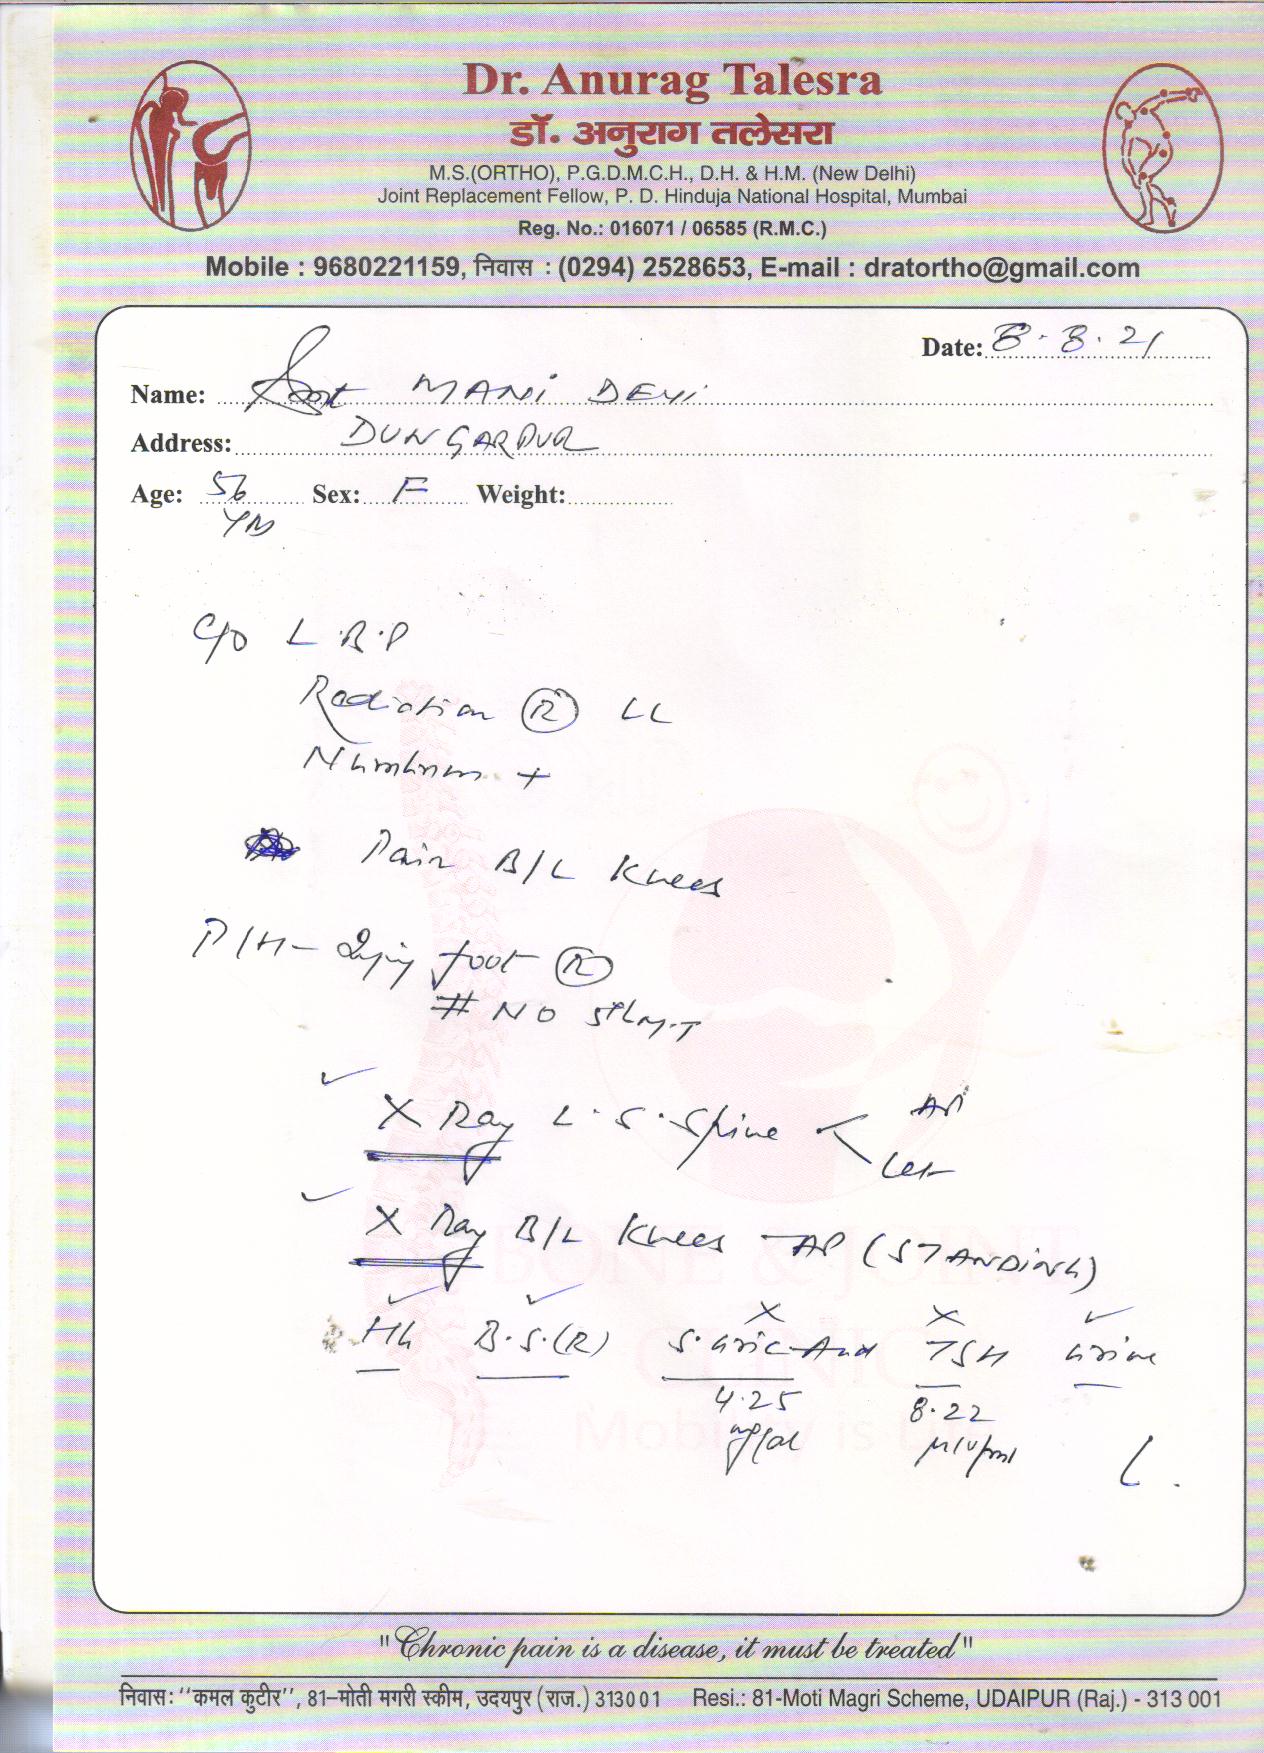 Dr. Anurag Talesra
डॉ. अनुराग तलेसरा
M.S.(ORTHO), P.G.D.M.C.H., D.H. & H.M. (New Delhi)
Joint Replacement Fellow, P. D. Hinduja National Hospital, Mumbai
Reg. No.: 016071 / 06585 (R.M.C.)
Mobile : 9680221159, निवास : (0294) 2528653, E-mail : dratortho@gmail.com
Date: 8.8.21
Name: Smt MANI DEVI
Address: DUNGARPUR
Age: 56 Sex: F Weight:
C/O L.B.P
Radiation (R) LL
Numbness +
Pain B/L Knees
P/H - Injury foot (R)
# NO
X Ray L.S. Spine < AP
Lat
X Ray B/L Knees - AP (STANDING)
Hb B.S.(R) S. Uric Acid TSH Urine
4.25 8.22
mg/dl µIU/ml
BONE & JOINT
CLINIC
Mobility is
"Chronic pain is a disease, it must be treated"
निवास: ''कमल कुटीर'', 81–मोती मगरी स्कीम, उदयपुर (राज.) 313001 Resi.: 81-Moti Magri Scheme, UDAIPUR (Raj.) - 313 001